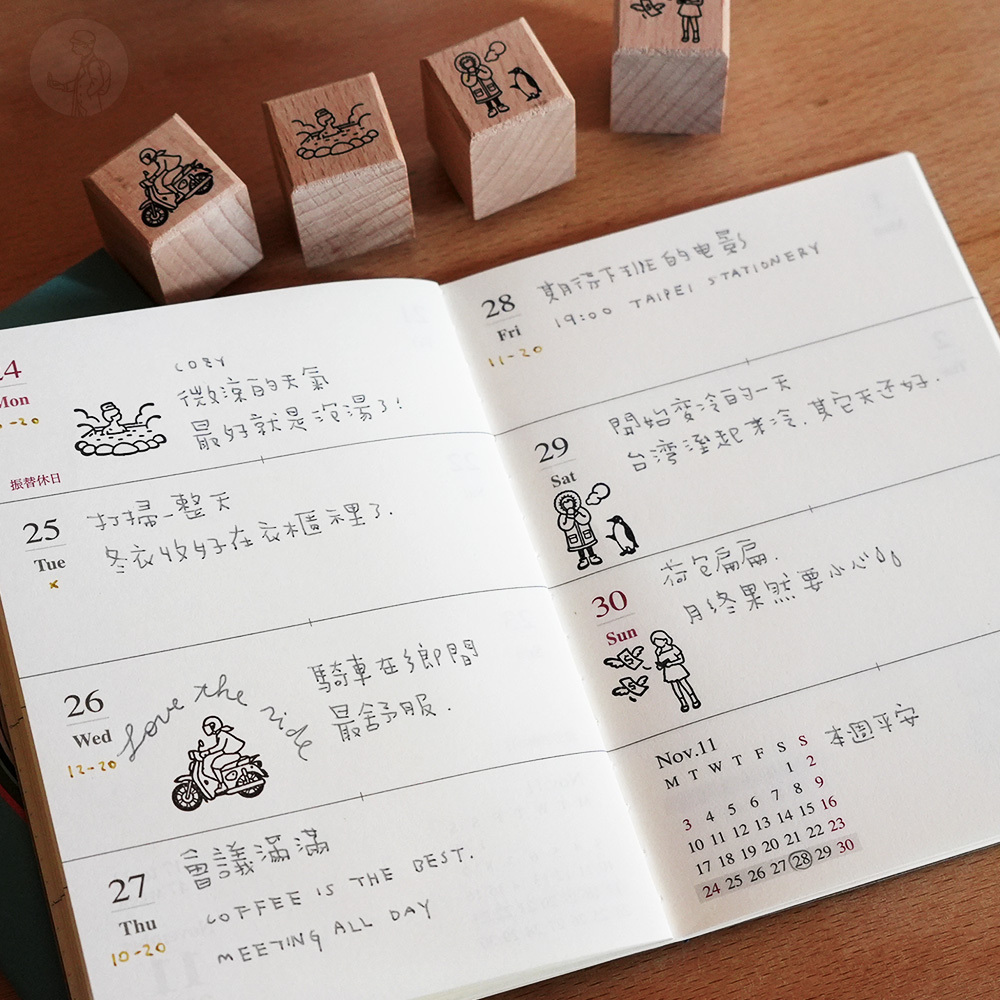 24
Mon
-20
COZY
微涼的天氣
最好就是泡湯了!
振替休日
25
Tue
x
打掃一整天
冬衣收好在衣櫃裡了.
26
Wed
12-20
love the ride
騎車在鄉間
最舒服.
27
Thu
10-20
會議滿滿
COFFEE IS THE BEST.
MEETING ALL DAY
28
Fri
11-20
期待下班的電影
19:00 TAIPEI STATIONERY
29
Sat
開始變冷的一天
台灣溼起來冷.其它天还好.
30
Sun
荷包扁扁.
月終果然要小心
本週平安
Nov.11
M T W T F S S
1 2
3 4 5 6 7 8 9
10 11 12 13 14 15 16
17 18 19 20 21 22 23
24 25 26 27 28 29 30